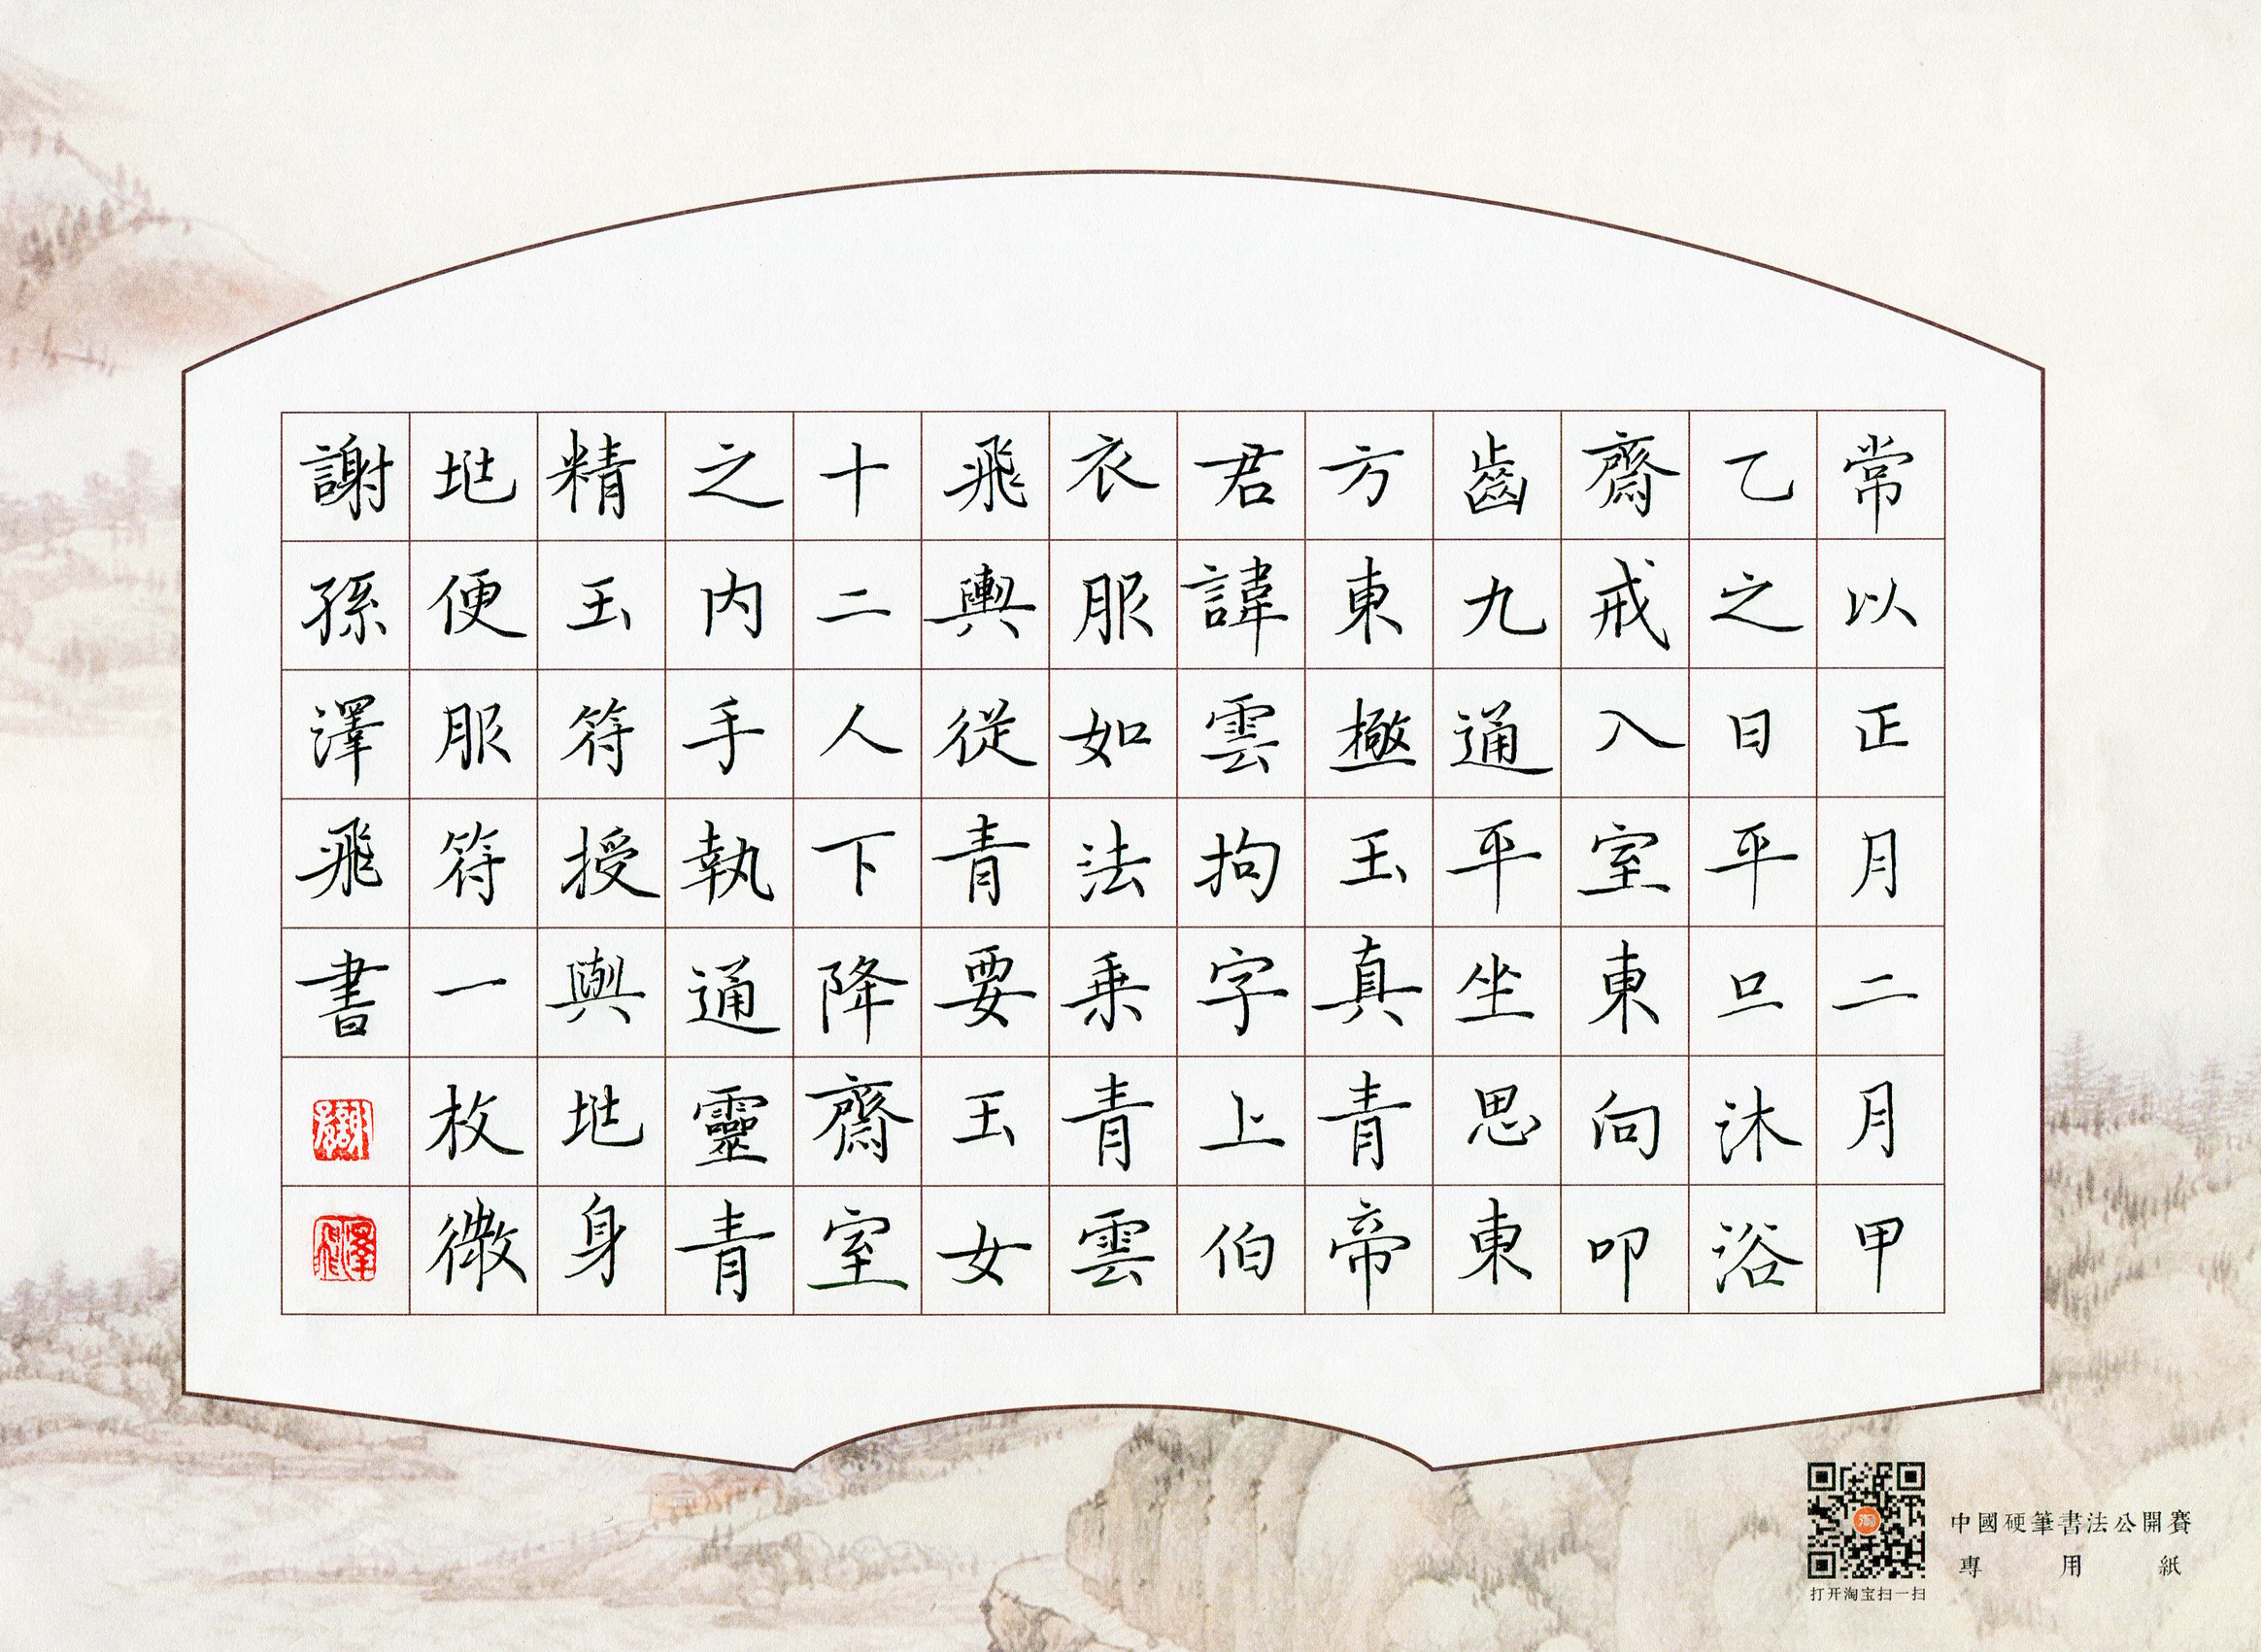 常以正月二月甲
乙之日平旦沐浴
齋戒入室東向叩
齒九通平坐思東
方東極玉真青帝
君諱雲拘字上伯
衣服如法乗青雲
飛輿從青要玉女
十二人下降齋室
之内手執通靈青
精玉符授與地身
地便服符一枚微
謝孫澤飛書
中國硬筆書法公開賽
專用紙
打开淘宝扫一扫